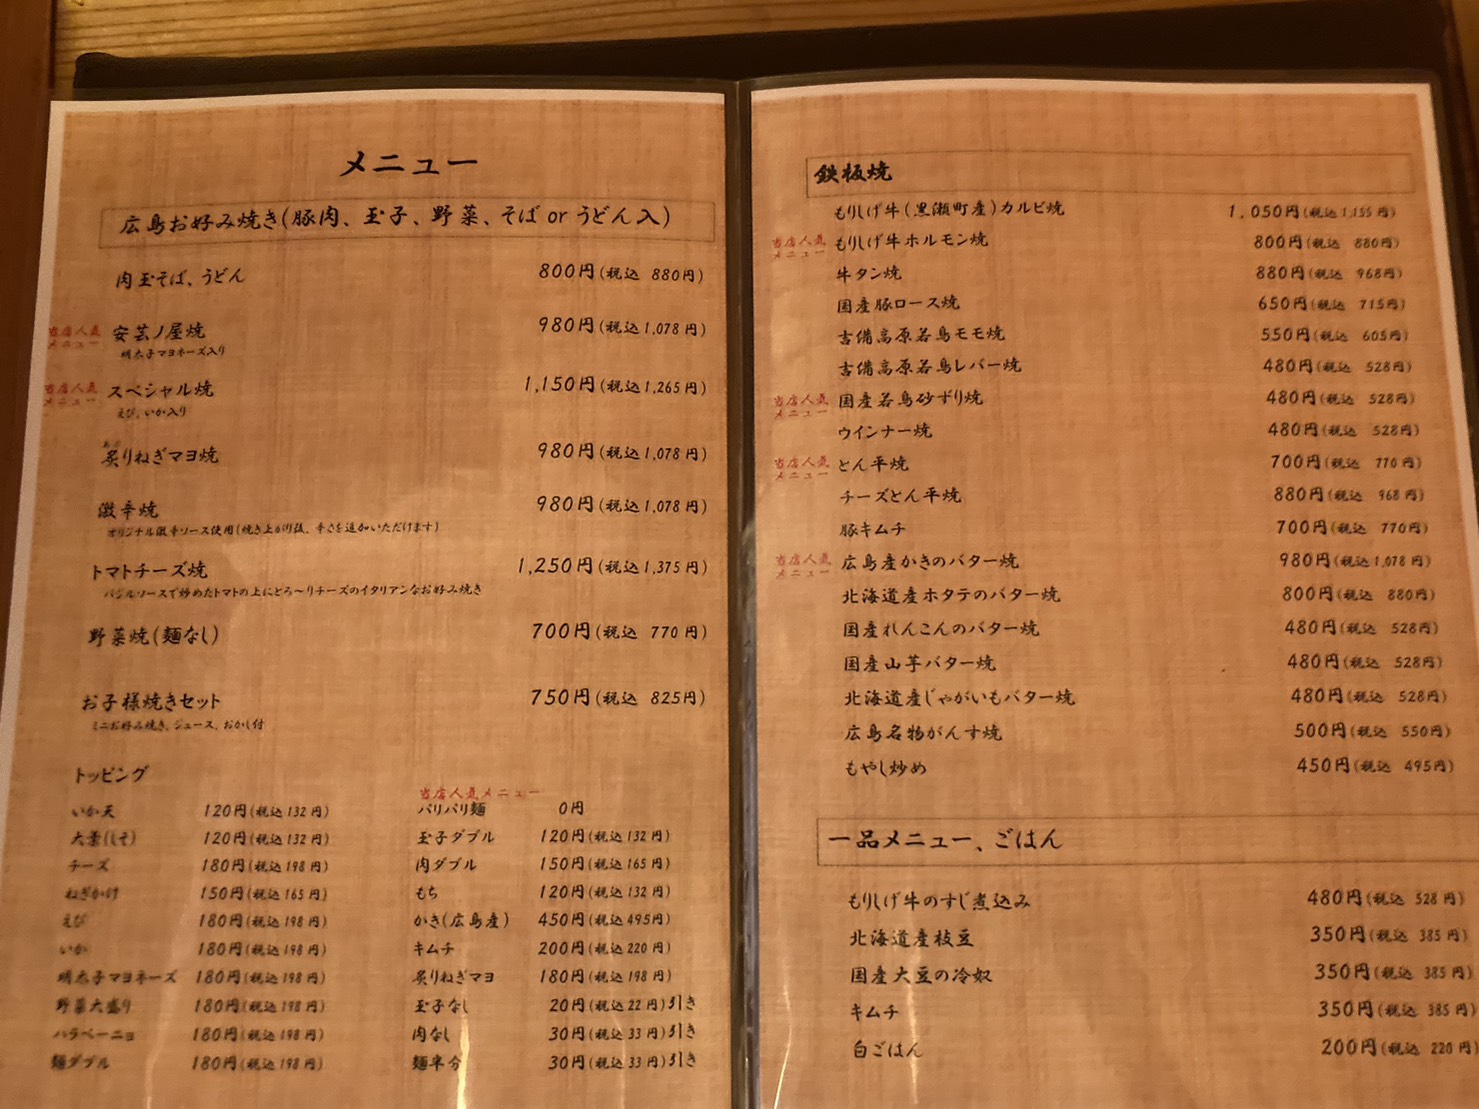 メニュー
広島お好み焼き(豚肉、玉子、野菜、そば or うどん入)
肉玉そば、うどん 800円(税込 880円)
当店人気メニュー 安芸ノ屋焼 980円(税込1,078円)
明太子マヨネーズ入り
当店人気メニュー スペシャル焼 1,150円(税込1,265円)
えび、いか入り
炙りねぎマヨ焼 980円(税込1,078円)
激辛焼 980円(税込1,078円)
オリジナル激辛ソース使用(焼き上がり後、辛さを追加いただけます)
トマトチーズ焼 1,250円(税込1,375円)
バジルソースで炒めたトマトの上にとろ〜りチーズのイタリアンなお好み焼き
野菜焼(麺なし) 700円(税込 770円)
お子様焼きセット 750円(税込 825円)
ミニお好み焼き、ジュース、おかし付
トッピング
いか天 120円(税込132円)
大葉(しそ) 120円(税込132円)
チーズ 180円(税込198円)
ねぎかけ 150円(税込165円)
えび 180円(税込198円)
いか 180円(税込198円)
明太子マヨネーズ 180円(税込198円)
野菜大盛り 180円(税込198円)
ハラペーニョ 180円(税込198円)
麺ダブル 180円(税込198円)
当店人気メニュー
パリパリ麺 0円
玉子ダブル 120円(税込132円)
肉ダブル 150円(税込165円)
もち 120円(税込132円)
かき(広島産) 450円(税込495円)
キムチ 200円(税込220円)
炙りねぎマヨ 180円(税込198円)
玉子なし 20円(税込22円)引き
肉なし 30円(税込33円)引き
麺半分 30円(税込33円)引き
鉄板焼
もりしげ牛(黒瀬町産)カルビ焼 1,050円(税込1,155円)
当店人気メニュー もりしげ牛ホルモン焼 800円(税込 880円)
牛タン焼 880円(税込 968円)
国産豚ロース焼 650円(税込 715円)
吉備高原若鳥モモ焼 550円(税込 605円)
吉備高原若鳥レバー焼 480円(税込 528円)
当店人気メニュー 国産若鳥砂ずり焼 480円(税込 528円)
ウインナー焼 480円(税込 528円)
当店人気メニュー とん平焼 700円(税込 770円)
チーズとん平焼 880円(税込 968円)
豚キムチ 700円(税込 770円)
当店人気メニュー 広島産かきのバター焼 980円(税込1,078円)
北海道産ホタテのバター焼 800円(税込 880円)
国産れんこんのバター焼 480円(税込 528円)
国産山芋バター焼 480円(税込 528円)
北海道産じゃがいもバター焼 480円(税込 528円)
広島名物がんす焼 500円(税込 550円)
もやし炒め 450円(税込 495円)
一品メニュー、ごはん
もりしげ牛のすじ煮込み 480円(税込 528円)
北海道産枝豆 350円(税込 385円)
国産大豆の冷奴 350円(税込 385円)
キムチ 350円(税込 385円)
白ごはん 200円(税込 220円)